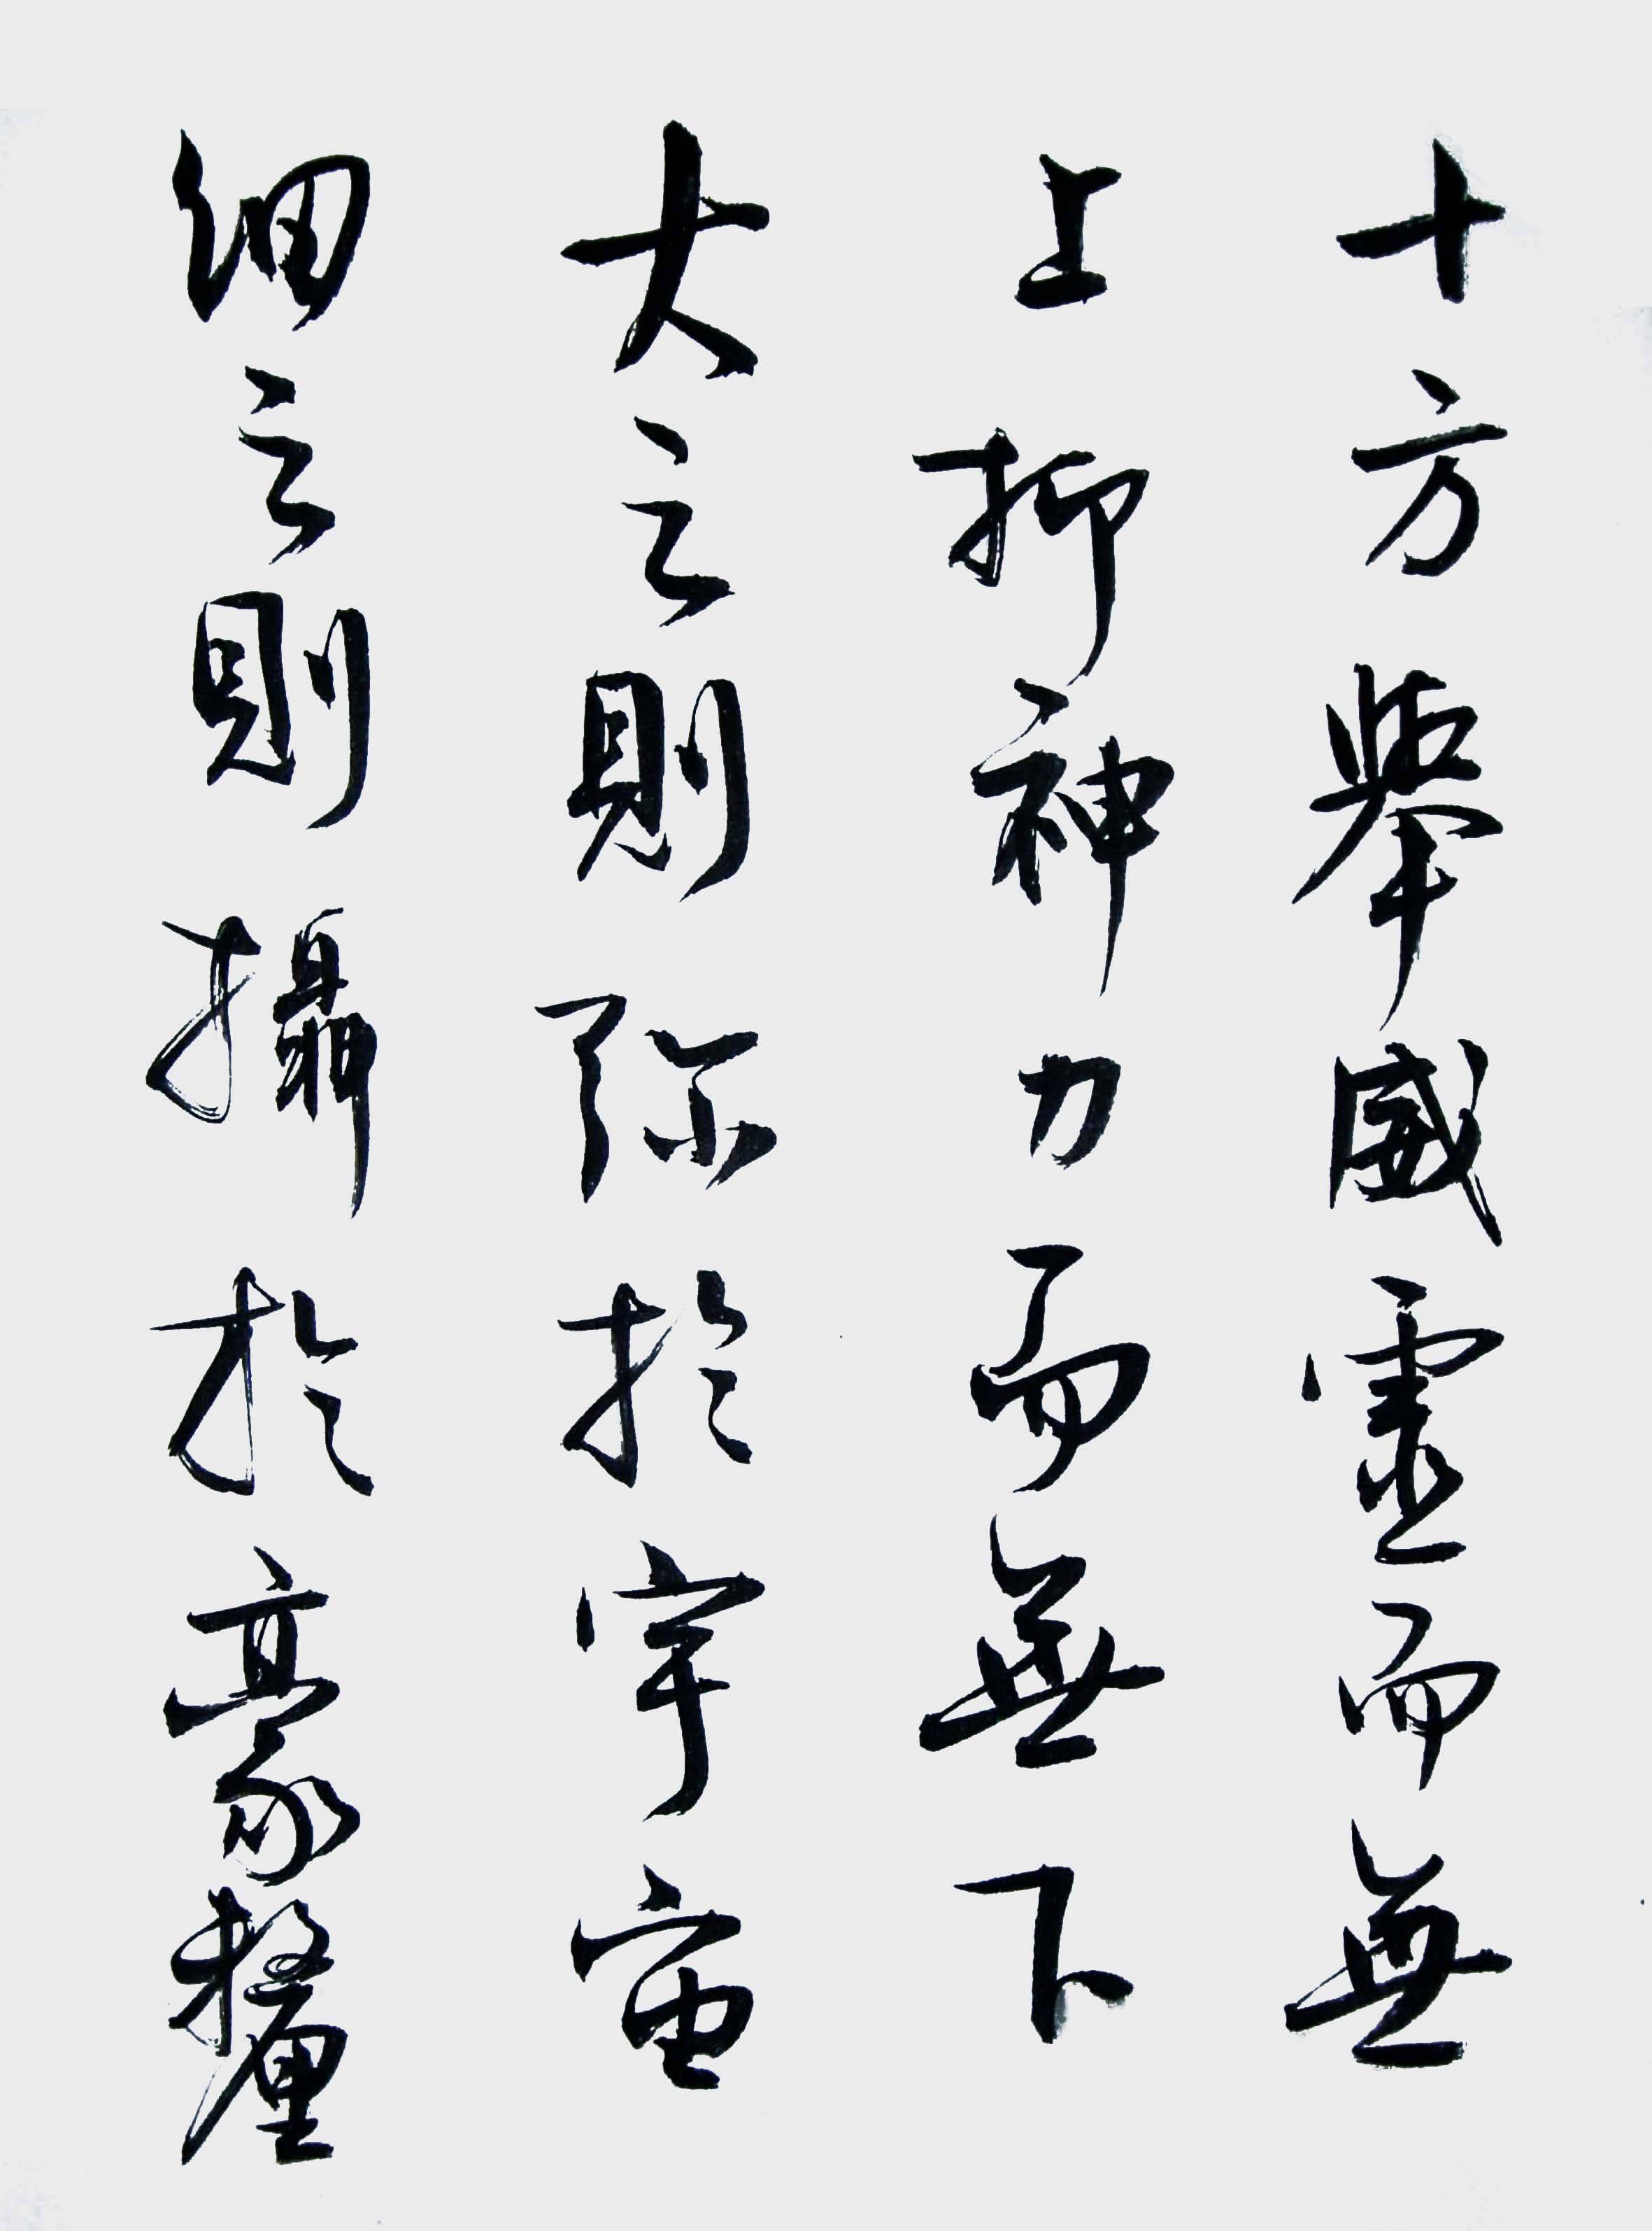 十方舉威靈而無
上抑神力而無下
大之則弥於宇宙
細之則攝於豪釐